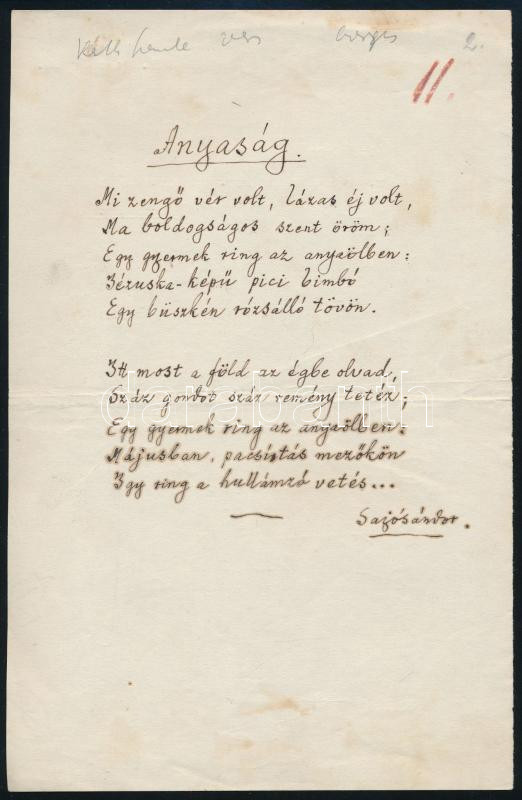 2.
11.
Anyaság.
Mi zengő vér volt, lázas éj volt,
Ma boldogságos szent öröm;
Egy gyermek ring az anyaölben:
Jézuska-képű pici bimbó
Egy büszkén rózsálló tövön.
Itt most a föld az égbe olvad,
Száz gondot száz remény tetéz;
Egy gyermek ring az anyaölben:
Májusban, pacsirtás mezőkön
Igy ring a hullámzó vetés...
Sajósándor.
darabanth